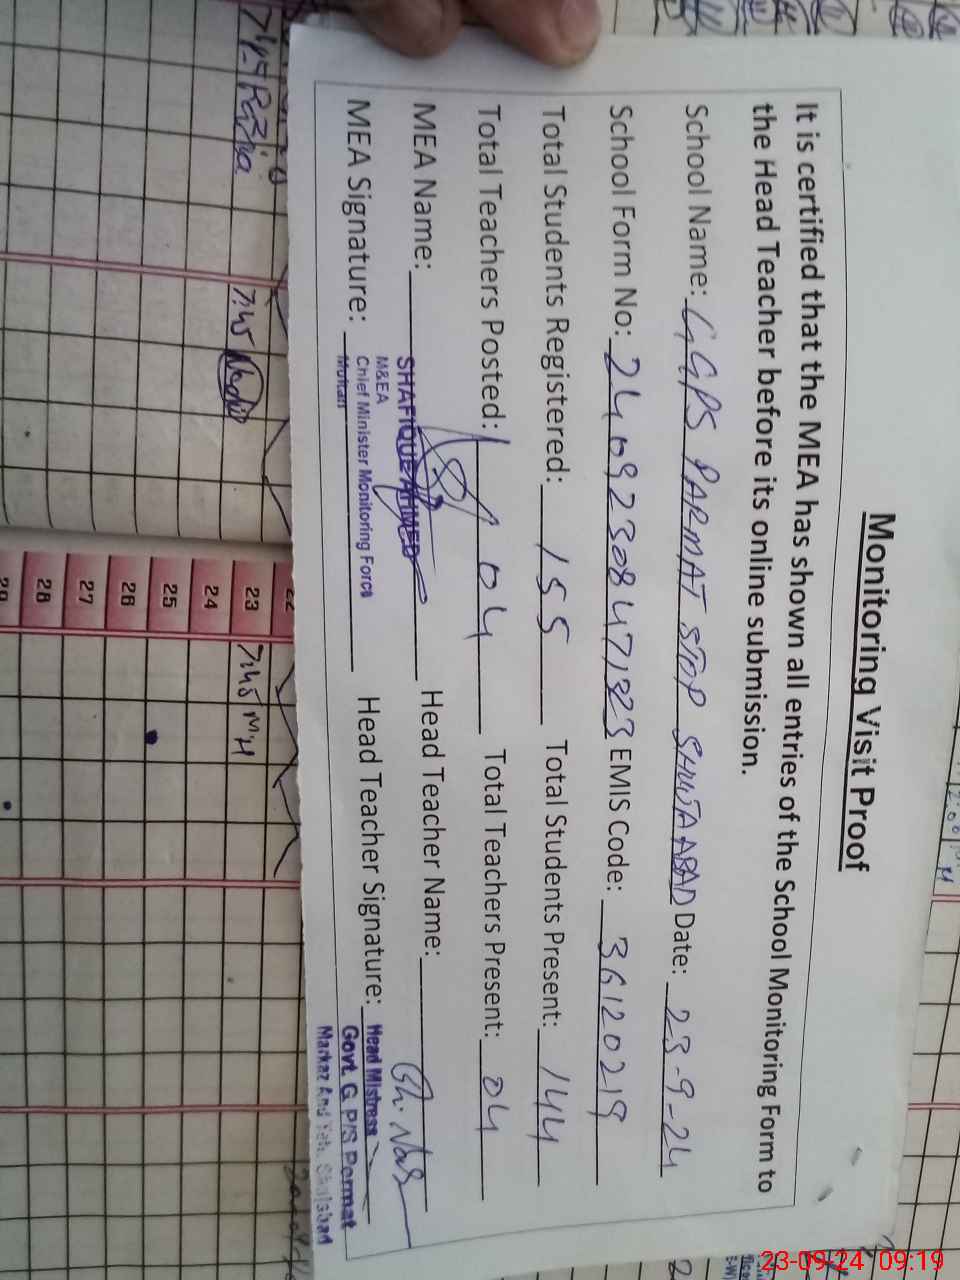 Monitoring Visit Proof
It is certified that the MEA has shown all entries of the School Monitoring Form to
the Head Teacher before its online submission.
School Name: GGPS PARMAT STOP SHUJAABAD Date: 23-9-24
School Form No: EMIS Code: 36120219
Total Students Registered: 155 Total Students Present: 144
Total Teachers Posted: 04 Total Teachers Present: 04
MEA Name: SHAFIQUE AHMED Head Teacher Name:
M&EA
Chief Minister Monitoring Force
Multan
MEA Signature: Head Teacher Signature:
Head Mistress
Govt. G. P/S Permat
Markaz And Teh.
22
23 7:45 M H
24
25
26
27
28
29
7:45
23-09-24 09:19